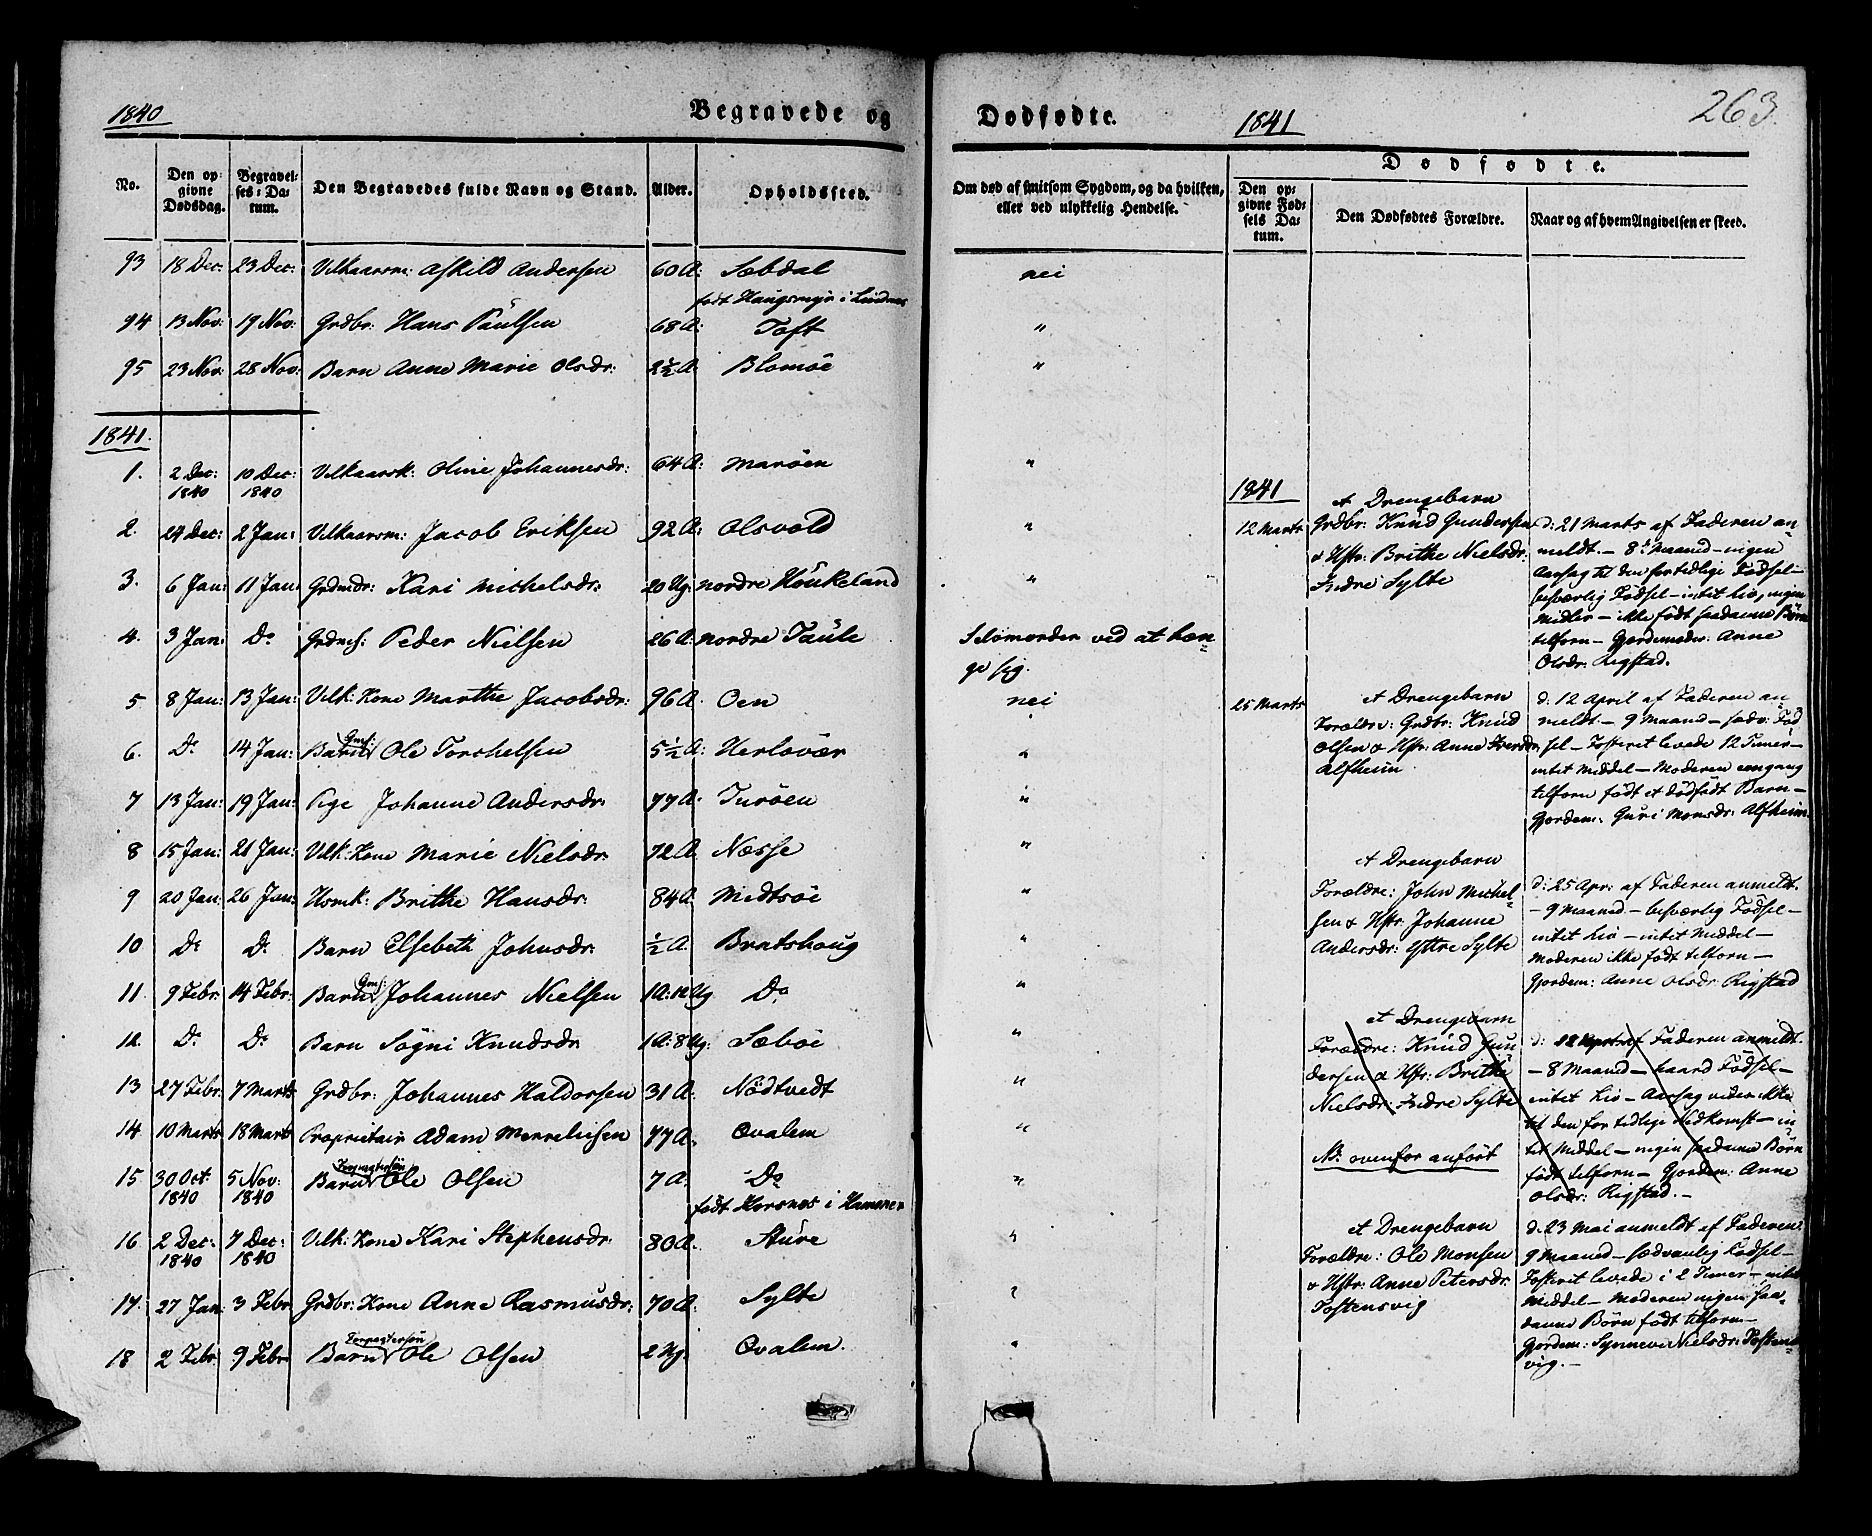 1840
Begravede og
No.
Den op-
givne
Dødsdag.
Begravel-
ses-Da-
tum.
Den Begravedes fulde Navn og Stand.
Alder.
Opholdssted.
93 18 Dec: 23 Dec: Vilkaarsm: Askild Andersen 60 A: Sæbdal
født Haugsmyr i Lindaas
94 13 Nov: 19 Nov: Grdbr: Hans Paulsen 68 A: Toft
95 23 Nov: 28 Nov: Barn Anne Marie Olsdr: 2½ A Blomöe
1841.
1. 2 Dec: 10 Dec: Vilkaarsk: Oline Johannesdr: 64 A: Maröen
1840 1840
2. 24 Dec: 2 Jan: Vilkaarsm: Jacob Eriksen 92 A: Olsvold
3. 6 Jan: 11 Jan: Grdmdr: Kari Michelsdr: 20 Ug: nordre Houkeland
4. 3 Jan: Do Grdms: Peder Nielsen 26 A: nordre Taule
5 8 Jan: 13 Jan: Vilk: Kone Marthe Jacobsdr: 96 A: Oen
6. Do 14 Jan: Barn Gmf: Ole Torchelsen 5½ A: Herlövær
7 13 Jan: 19 Jan: Pige Johanne Andersdr: 77 A: Turöen
8 15 Jan: 21 Jan: Vilk: Kone Marie Nielsdr: 72 A Næsse
9 20 Jan: 26 Jan: Husmk: Brithe Hansdr: 84 A Midtsöe
10 Do Do Barn Elsebeth Johnsdr: ½ A: Bratshoug
11. 9 Febr: 14 Febr: Barn Gmf: Johannes Nielsen 1 A: 12 Ug Do
12. Do Do Barn Sögni Knudsdr 1 A: 8 Ug: Sæböe
13 27 Febr: 7 Marts Grdbr: Johannes Haldorsen 31 A: Nödtvedt
14 10 Marts 18 Marts Proprietair Adam Merreliesen 77 A: Qvalem
15 30 Oct: 5 Nov: Barn Forpagtersön Ole Olsen 7 A: Do
1840 1840
født Horsnes i Hammer
16 2 Dec: 7 Dec: Vilk: Kone Kari Stephensdr: 80 A: Sture
1840 1840
17. 27 Jan: 3 Febr Grdbr: Kone Anne Rasmusdr: 70 A: Sylte
18 2 Febr: 9 Febr Barn Forpagtersön Ole Olsen 2 Ug. Qvalem.
Dødfødte.
1841
263.
Om død af smitsom Sygdom, og da hvilken,
eller ved ulykkelig Hendelse.
Dødfødte.
Den op-
givne Fød-
sels Da-
tum.
Den Dødfødtes Forældre.
Naar og af hvem Angivelsen er skeed.
nei
"
"
"
"
"
Selvmorder ved at hæn-
ge sig.
nei
"
"
"
"
"
"
"
"
"
"
"
"
"
1841
12 Marts
et Drengebarn
Grdbr: Knud Gundersen
& Hstr: Brithe Nielsdr:
Indre Sylte
d: 21 Marts af Faderen an-
meldt.- 8 Maaned - ingen
Aarsag til den fortidlige Födsel -
besværlig Födsel - intet Liv, ingen
Midler - ikke födt saadanne Börn
tilforn - Gjordemoder: Anne
Olsdr: Rigstad.
25 Marts
et Drengebarn
Forældre: Grdbr: Knud
Olsen & Hstr: Anne Iversdr
Alfheim
d: 12 April af Faderen an-
meldt - 9 Maaned - sædv: Föd
sel - Fosteret levede 12 Timer -
intet Middel - Moderen eengang
tilforn födt et dödfödt Barn -
Gjordem: Guri Monsdr: Alfheim.
et Drengebarn
Forældre: John Michel-
sen & Hstr: Johanne
Andersdr: Yttre Sylte
d: 25 Apr: af Faderen anmeldt.
- 9 Maaned - besværlig Födsel -
intet Liv - intet Middel -
Moderen ikke födt tilforn -
Gjordem: Anne Olsdr: Rigstad
et Drengebarn
Forældre: Knud Gun
dersen & Hstr: Brithe
Nielsdr: Indre Sylte
NB: ovenfor anfört
d: 12 af Faderen anmeldt.
- 8 Maaned - haard Födsel -
intet Liv - Aarsag vides ikke
til den fortidlige Nedkomst - in
tet Middel - ingen saadanne Börn
födt tilforn - Gjordem: Anne
Olsdr: Rigstad. -
et Drengebarn
Forældre: Ole Monsen
& Hstr: Anne Petersdr:
Tostensvig
d: 23 Mai anmeldt af Faderen
9 Maaned - sædvanlig Födsel -
Fosteret levede i 2 Timer - intet
Middel - Moderen ingen saa-
danne Börn födt tilforn -
Gjordem: Synneve Nielsdr: Tostens-
vig. -